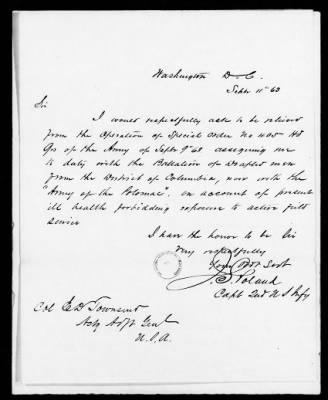 Washington D.C.
Sept 11th 63
Sir
I would respectfully ask to be relieved
from the operation of Special Order No 405 Hd
Qrs of the Army of Sept 9th 63 assigning me
to duty with the Battalion of drafted men
from the District of Columbia, now with the
"Army of the Potomac", on account of present
ill health forbidding exposure to active field
service
I have the honor to be Sir
Very respectfully
Your Obt Servt
J. S. Poland
Capt 2nd U S Infy
Col E D Townsend
Asst Adjt Genl
U.S.A.